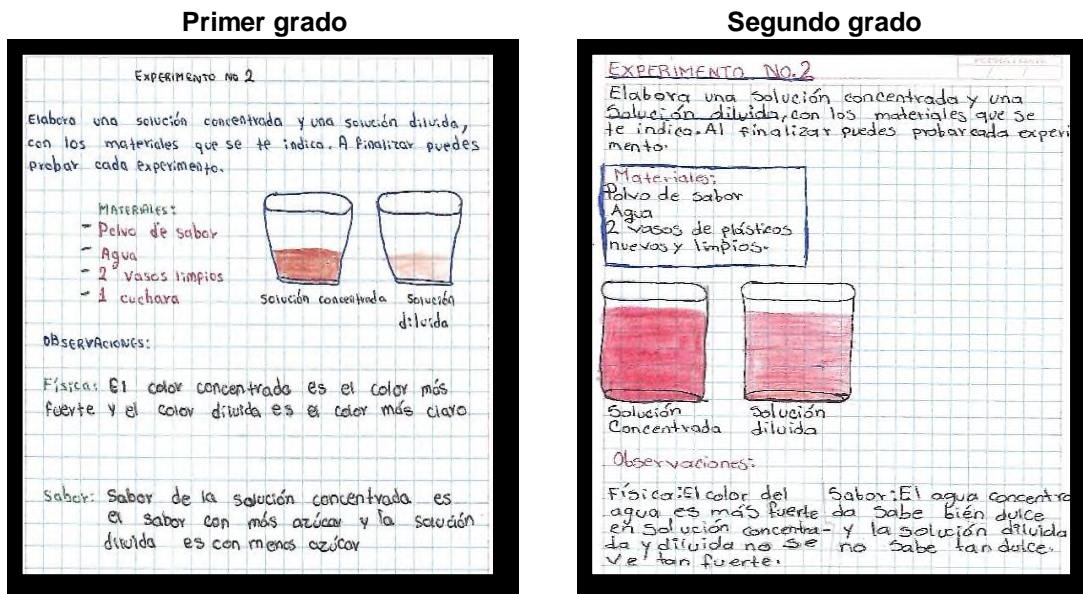 Primer grado
EXPERIMENTO No 2
Elabora una solución concentrada y una solución diluida,
con los materiales que se te indica. A finalizar puedes
probar cada experimento.
MATERIALES:
- Polvo de sabor
- Agua
- 2 vasos limpios
- 1 cuchara
Solución concentrada
Solución
diluida
OBSERVACIONES:
Física: El color concentrado es el color más
fuerte y el color diluida es el color más claro
Sabor: Sabor de la solución concentrada es
el sabor con más azúcar y la solución
diluida es con menos azúcar
Segundo grado
EXPERIMENTO No.2
Elabora una solución concentrada y una
Solución diluida, con los materiales que se
te indica. Al finalizar puedes probar cada experi
mento.
Materiales:
Polvo de sabor
Agua
2 vasos de plásticos
nuevos y limpios.
Solución
Concentrada
Solución
diluida
Observaciones:
Física: El color del
agua es más fuerte
en solución concentra-
da y diluida no se
ve tan fuerte.
Sabor: El agua concentra
da sabe bién dulce
y la solución diluida
no sabe tan dulce.